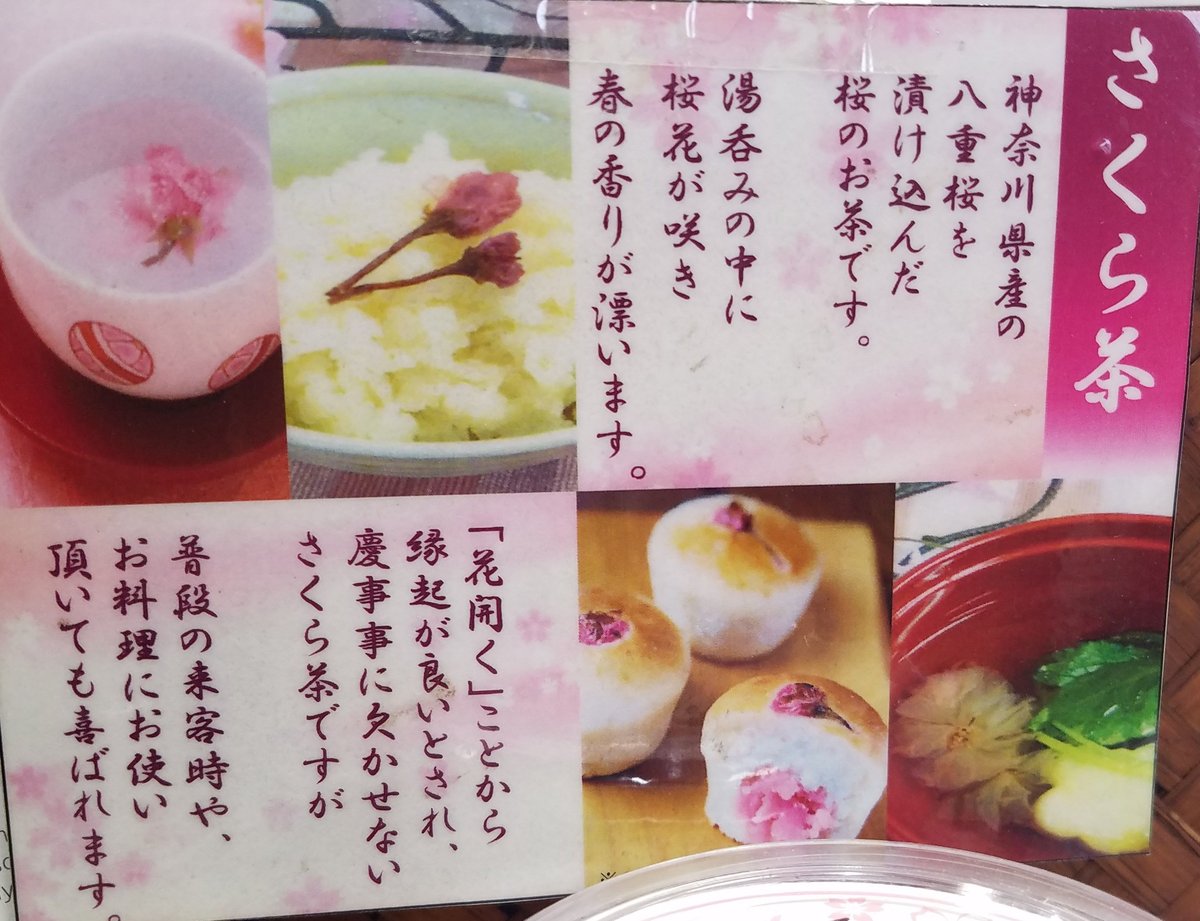 さくら茶
神奈川県産の
八重桜を
漬け込んだ
桜のお茶です。
湯呑みの中に
桜花が咲き
春の香りが漂います。
「花開く」ことから
縁起が良いとされ、
慶事事に欠かせない
さくら茶ですが
普段の来客時や、
お料理にお使い
頂いても喜ばれます。
※